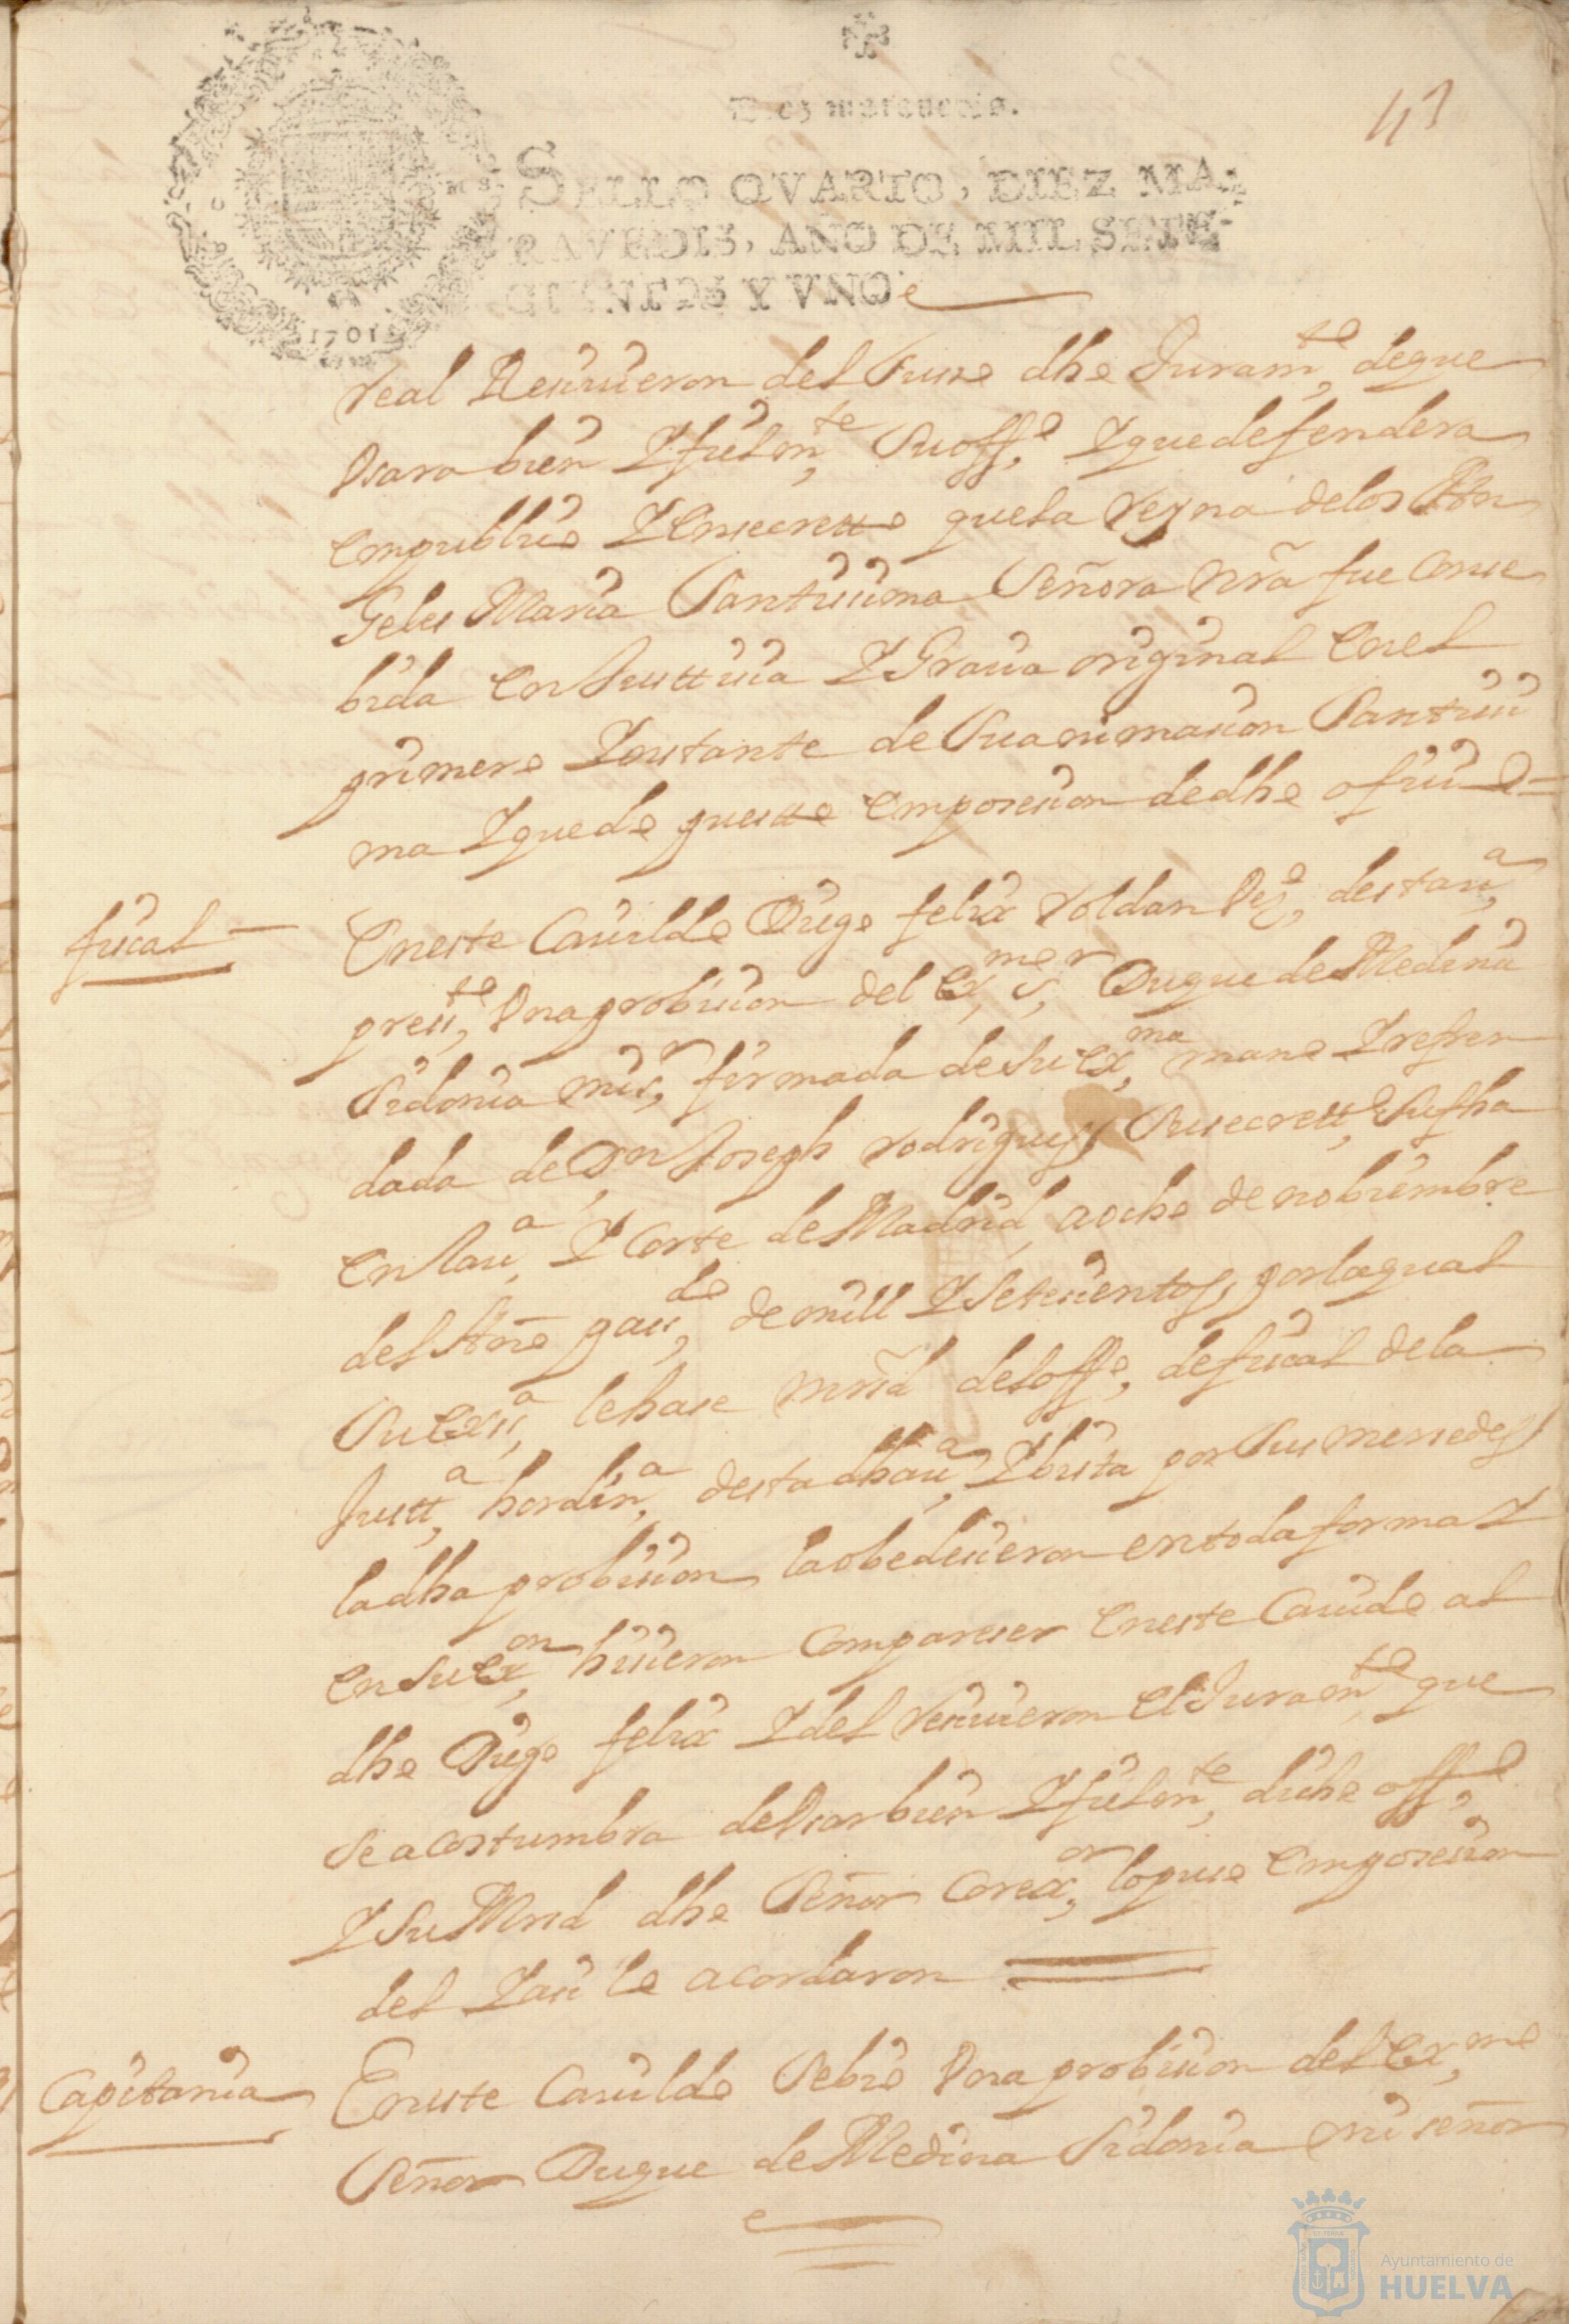 Diez marauedis.
43
SELLO QVARTO, DIEZ MA-
RAVEDIS, AÑO DE MIL SETE-
CIENTOS Y VNO
1701
real Reciuieron del suso dho Juramto, de que
Vsara bien Y fielmte, Su offo, Y que defendera
En publico Y En secretto que la Reyna de los An
Geles Maria Santicima Señora Nrã fue Conce
bida En Justticia Y Gracia original En el
primero Ynstante de Su animacion Santici
ma Y quedo puestto En posecion de dho oficio =
fiscal
En este Cauildo Diego felix Roldan Vzo, desta Va,
presto, Vna probicion del Exmo Sr, Duque de Medina
Sidonia mi sr, firmada de Su Exma mano Y refren
dada de Dn Joseph rodrigues Su secretto, Su fha
En la Va, Y Corte de Madrid a ocho de nobiembre
del Año pasdo, de mill Y Setecientos, por la qual
Su Exca, le hace mrd del offo, de fiscal de la
Justta, hordina, desta dha Va, Y bista por Sus mercedes
la dha probicion la obedecieron en toda forma Y
En Su Exon hicieron Comparecer En este Cauido al
dho Diego felix Y del reciuieron El Juramto que
Se acostumbra de Vsar bien Y fielmte, dicho offo,
Y Su Mrd dho Señor Corexor, lo puso En posecion
del Y asi lo acordaron
Capitania
En este Cauildo Se bio Vna probicion del Exmo
Señor Duque de Medina Sidonia mi señor
Ayuntamiento de
HUELVA